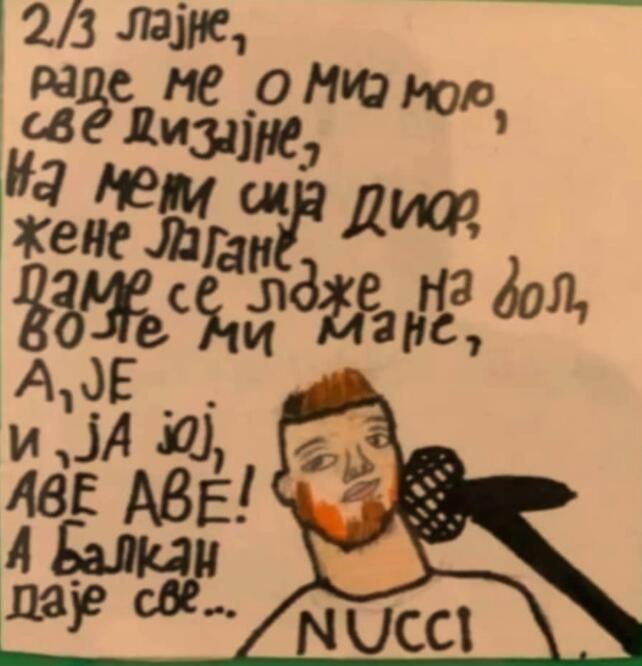 2/3 лајне,
раде ме о миа мор,
све дизајне,
на мени сија Диор,
жене лагане,
даме се ложе на бол,
воле ми мане,
А, ЈЕ
и, јА јој,
АВЕ АВЕ!
А Балкан
даје све...
NUCCI